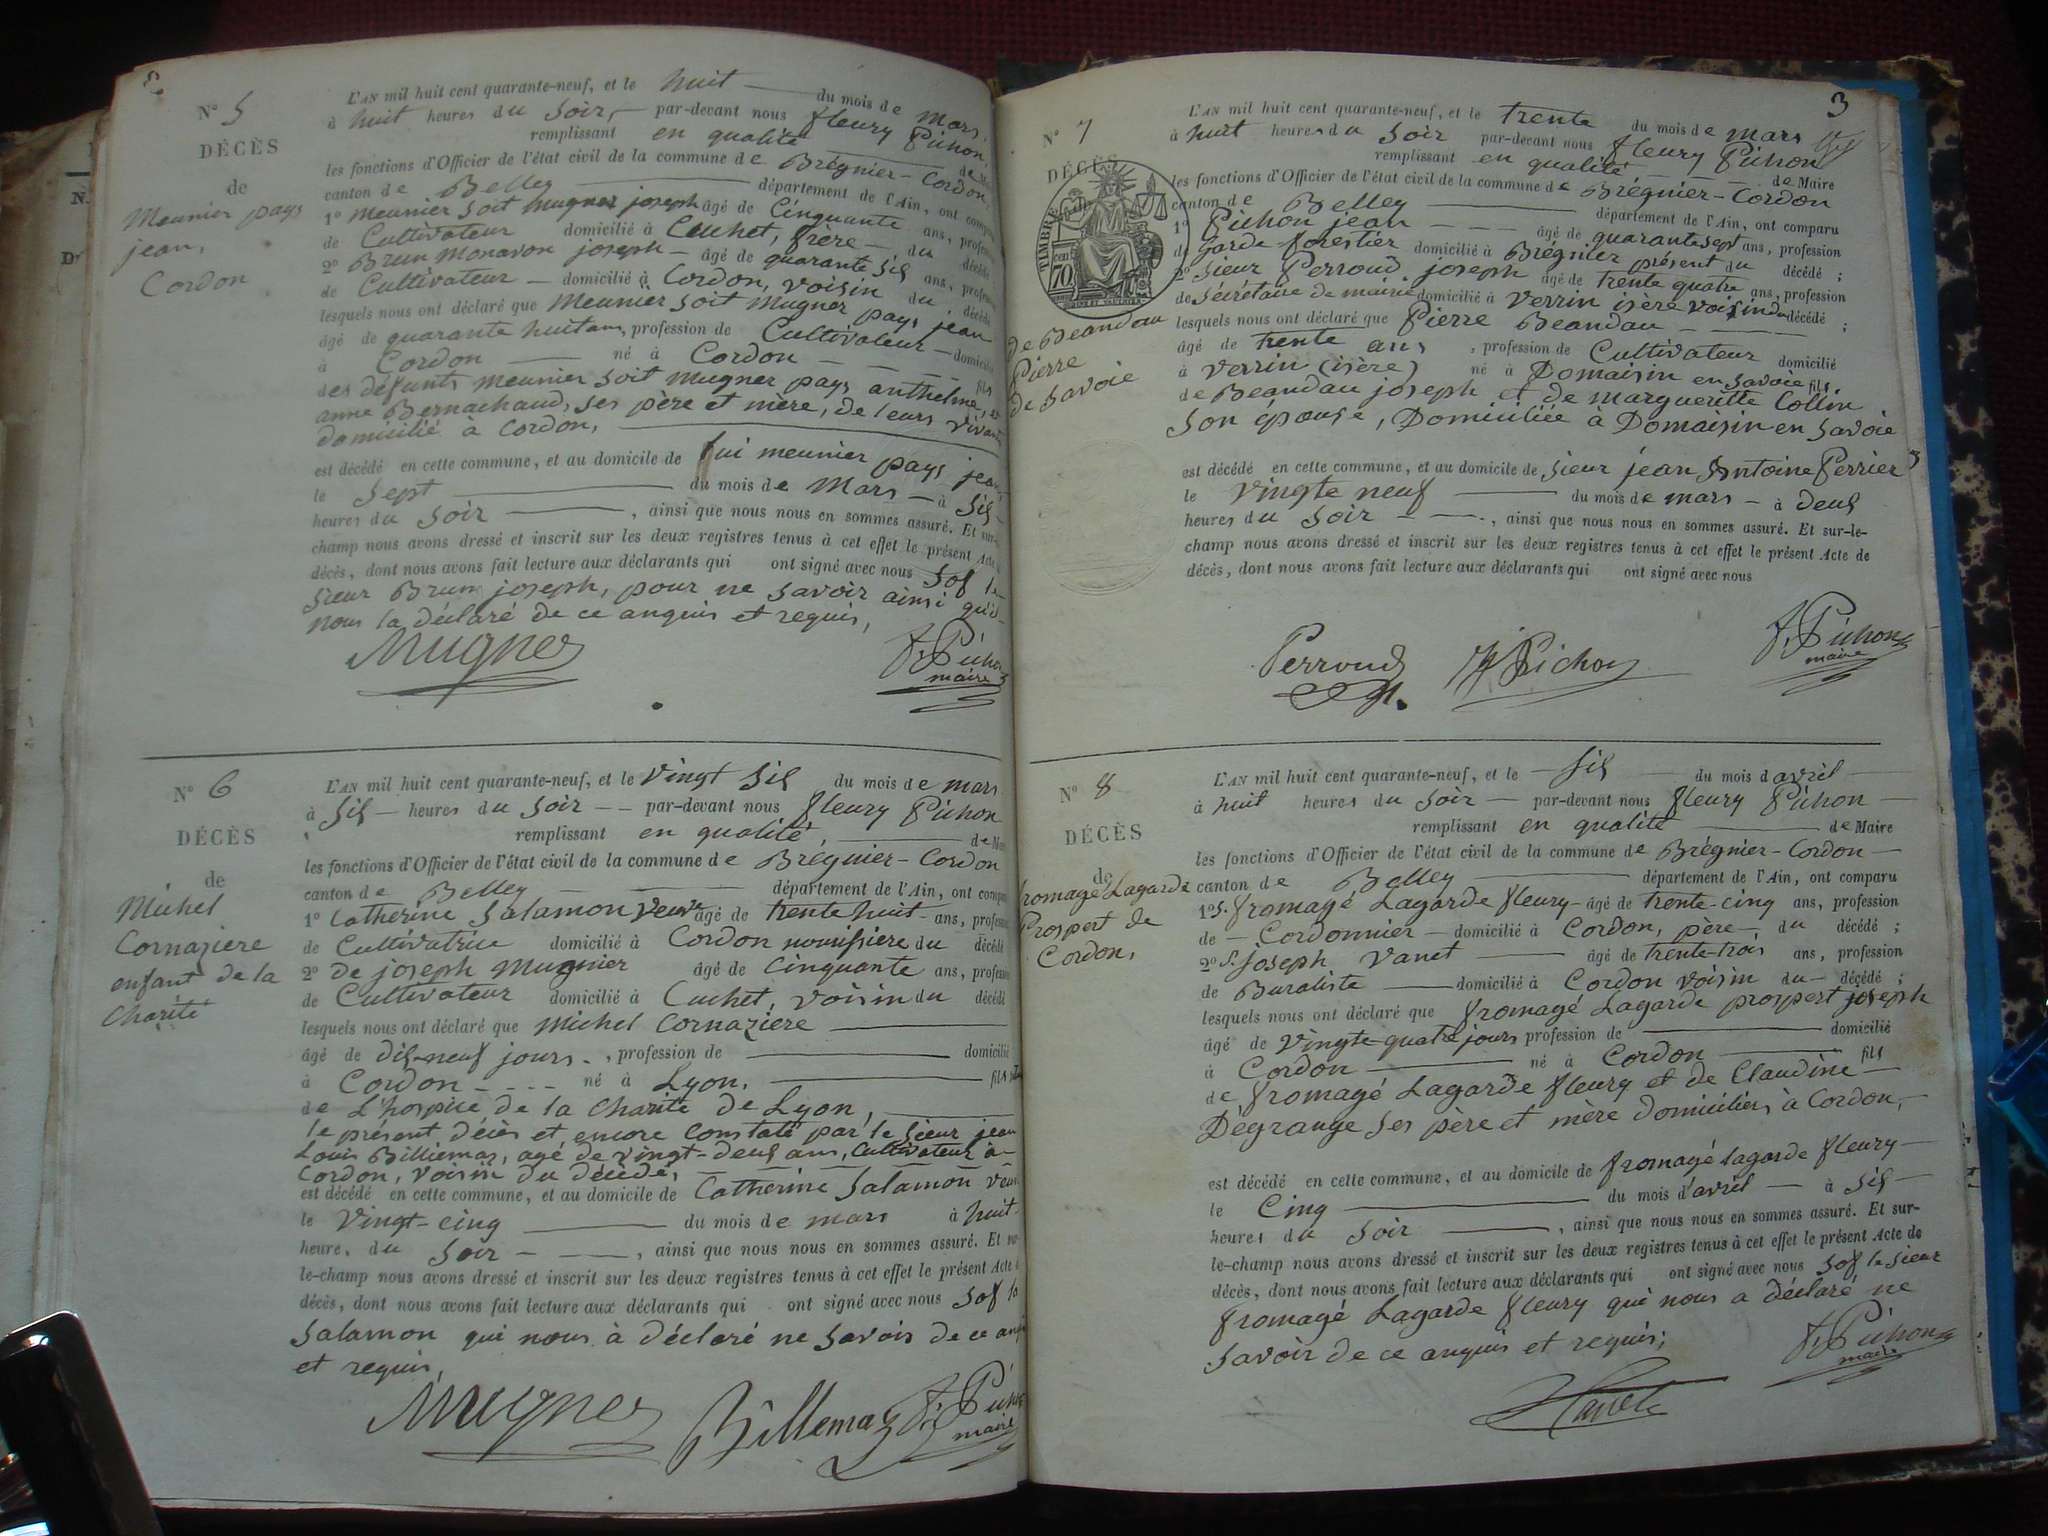 N° 5
DÉCÈS
de
Meunier pays
jean,
Cordon
L'AN mil huit cent quarante-neuf, et le huit du mois de mars
à huit heures du Soir, par-devant nous fleury Pichon
remplissant en qualité de
les fonctions d'Officier de l'état civil de la commune de Brégnier-Cordon
canton de Belley département de l'Ain, ont
1° Meunier soit mugner joseph âgé de Cinquante ans,
de Cultivateur domicilié à Cuchet, frère du
2° Brun Monavon joseph âgé de quarante Six ans,
de Cultivateur domicilié à Cordon, voisin du décédé
lesquels nous ont déclaré que Meunier soit Mugner pays jean
âgé de quarante huit ans, profession de Cultivateur
à Cordon né à Cordon fils
des défunts meunier soit mugner pays anthelme, et
anne Bernachaud, ses père et mère, de leurs vivants
domicilié à Cordon,
est décédé en cette commune, et au domicile de lui meunier pays jean
le Sept du mois de Mars à Six
heures du Soir, ainsi que nous nous en sommes assuré. Et sur-
champ nous avons dressé et inscrit sur les deux registres tenus à cet effet le présent Acte
décès, dont nous avons fait lecture aux déclarants qui ont signé avec nous Sof le
Sieur Brun joseph, pour ne savoir ainsi qu'il
nous la déclaré de ce anquis et requis,
Mugner F. Pichon
maire
N° 6
DÉCÈS
de
Michel
Cornaziere
enfant de la
Charité
L'AN mil huit cent quarante-neuf, et le Vingt Six du mois de mars
à Six heures du Soir par-devant nous fleury Pichon
remplissant en qualité de
les fonctions d'Officier de l'état civil de la commune de Brégnier-Cordon
canton de Belley département de l'Ain, ont
1° Catherine Salamon Veuve âgé de trente huit ans,
de Cultivatrice domicilié à Cordon nourissiere du décédé
2° De joseph Mugnier âgé de Cinquante ans,
de Cultivateur domicilié à Cuchet, voisin du décédé
lesquels nous ont déclaré que Michel Cornaziere
âgé de dix-neuf jours, profession de domicilié
à Cordon né à Lyon, fils
de L'hospice de la Charité de Lyon,
le présent décès et encore Constaté par le Sieur jean
Louis Billiemaz, agé de vingt-deux ans, Cultivateur à
Cordon, voisin du décédé,
est décédé en cette commune, et au domicile de Catherine Salamon
le Vingt-cinq du mois de mars à huit
heures du Soir, ainsi que nous nous en sommes assuré. Et
le-champ nous avons dressé et inscrit sur les deux registres tenus à cet effet le présent Acte
décès, dont nous avons fait lecture aux déclarants qui ont signé avec nous Sof la
Salamon qui nous à déclaré ne savoir de ce
et requis,
Mugner Billemaz F. Pichon
maire
3
N° 7
DÉCÈS
TIMBRE
70
de Beandau
Pierre
de Savoie
L'AN mil huit cent quarante-neuf, et le trente du mois de mars
à huit heures du Soir par-devant nous fleury Pichon
remplissant en qualité de Maire
les fonctions d'Officier de l'état civil de la commune de Brégnier-Cordon
canton de Belley département de l'Ain, ont comparu
1° Pichon jean âgé de quarante Sept ans, profession
de Garde-forestier domicilié à Brégnier présent du décédé ;
2° Sieur Perroud joseph âgé de trente quatre ans, profession
de Sécrétaire de mairie domicilié à Verrin isère voisin du décédé ;
lesquels nous ont déclaré que Pierre Beandau
âgé de trente ans, profession de Cultivateur domicilié
à Verrin (isère) né à Domaisin en Savoie fils
de Beandau joseph et de marguerite Collin
Son épouse, Domiciliée à Domaisin en Savoie
est décédé en cette commune, et au domicile de Sieur jean Antoine Perrier
le Vingte neuf du mois de mars à deux
heures du Soir, ainsi que nous nous en sommes assuré. Et sur-le-
champ nous avons dressé et inscrit sur les deux registres tenus à cet effet le présent Acte de
décès, dont nous avons fait lecture aux déclarants qui ont signé avec nous
Perroud Pichon F. Pichon
maire
N° 8
DÉCÈS
de
fromagé Lagarde
Prospert de
Cordon,
L'AN mil huit cent quarante-neuf, et le Six du mois d'avril
à huit heures du Soir par-devant nous fleury Pichon
remplissant en qualité de Maire
les fonctions d'Officier de l'état civil de la commune de Brégnier-Cordon
canton de Belley département de l'Ain, ont comparu
1° S. fromagé Lagarde fleury âgé de trente-cinq ans, profession
de Cordonnier domicilié à Cordon, père du décédé ;
2° S. joseph Vanet âgé de trente-trois ans, profession
de Buraliste domicilié à Cordon voisin du décédé ;
lesquels nous ont déclaré que fromagé Lagarde prospert joseph
âgé de Vingte-quatre jours profession de domicilié
à Cordon né à Cordon fils
de fromagé Lagarde fleury et de Claudine
Dégrange Ses père et mère domiciliés à Cordon,
est décédé en cette commune, et au domicile de fromagé Lagarde fleury
le Cinq du mois d'avril à Six
heures du Soir, ainsi que nous nous en sommes assuré. Et sur-
le-champ nous avons dressé et inscrit sur les deux registres tenus à cet effet le présent Acte de
décès, dont nous avons fait lecture aux déclarants qui ont signé avec nous Sof le Sieur
fromagé Lagarde fleury qui nous a déclaré ne
Savoir de ce anquis et requis;
F. Pichon
maire
Vanet